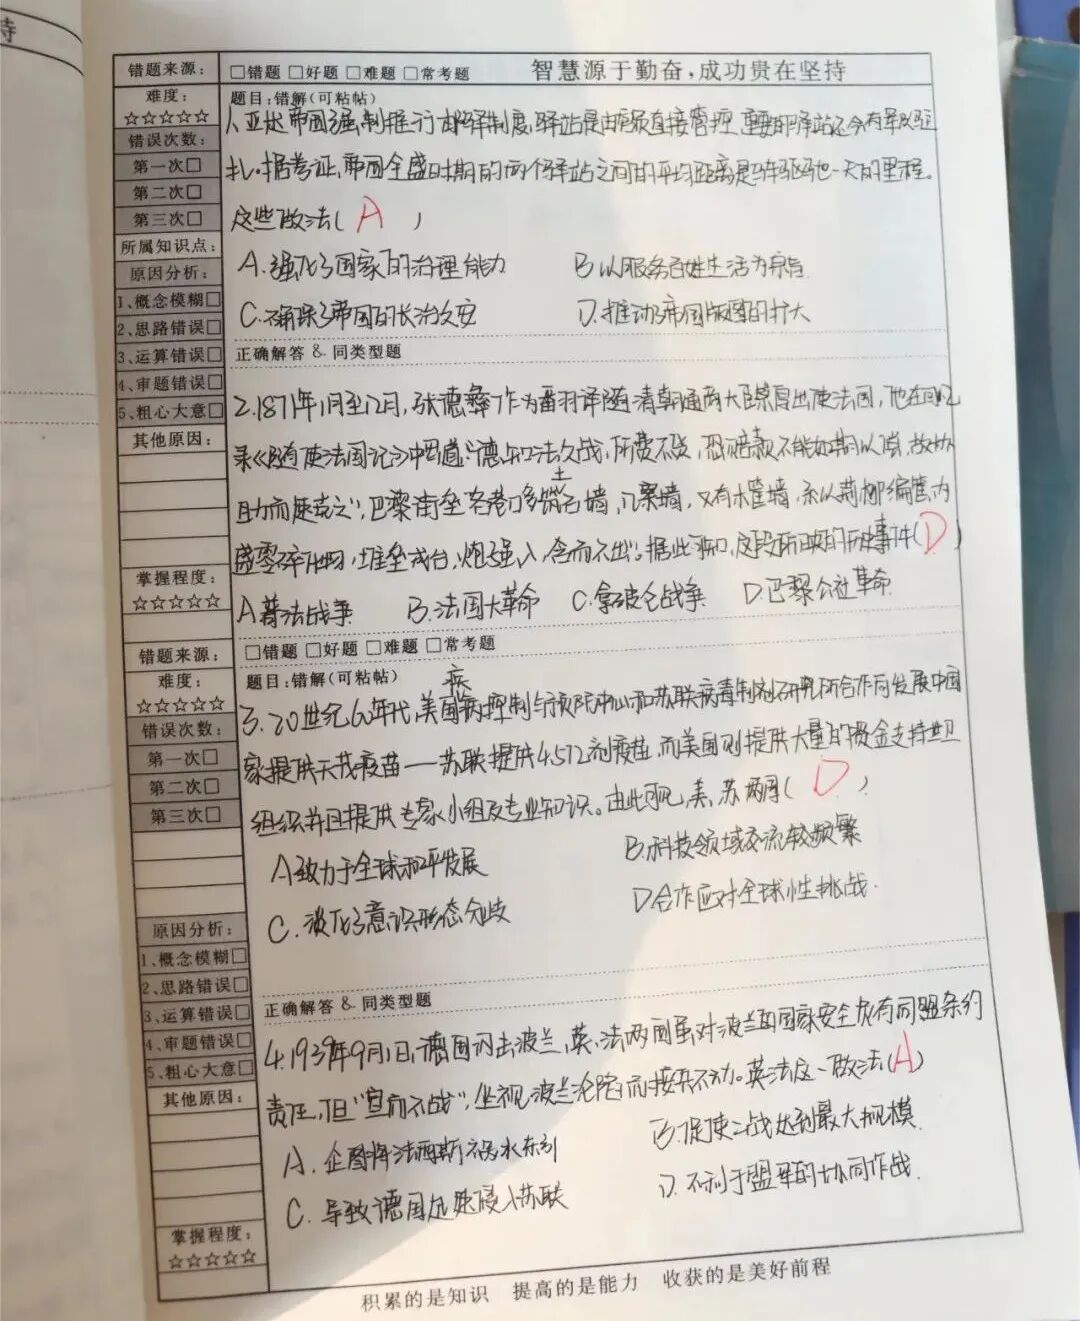 持
错题来源: □错题 □好题 □难题 □常考题 智慧源于勤奋,成功贵在坚持
难度: ☆☆☆☆☆
题目:错解(可粘帖)
错误次数:
第一次□
第二次□
第三次□
所属知识点:
原因分析:
1、概念模糊□
2、思路错误□
3、运算错误□
4、审题错误□
5、粗心大意□
其他原因:
掌握程度:
☆☆☆☆☆
1、亚述帝国强制推行邮驿制度,驿站是由官员直接管控,重要的驿站还会有军队驻
扎。据考证,帝国全盛时期的两个驿站之间的平均距离是马车驱驰一天的里程。
这些做法( A )
A.强化了国家的治理能力 B.以服务百姓生活为宗旨
C.确保了帝国的长治久安 D.推动了帝国版图的扩大
正确解答 & 同类型题
2.1871年1月至12月,张德彝作为翻译随清朝通商大臣崇厚出使法国,他在
录《随使法国记》中写道:“德与法久战,所费不赀,恐赔款不能如期以偿,故
助而速克之”,巴黎街垒各巷口多筑土石墙,几累墙,又有木筐墙,系以荆柳编筐,内
盛零碎,堆垒成台,炮子强入,含而不出”。据此可知,这段所映的历史事件( D )
A.普法战争 B.法国大革命 C.拿破仑战争 D.巴黎公社革命
错题来源: □错题 □好题 □难题 □常考题
难度: ☆☆☆☆☆
题目:错解(可粘帖)
错误次数:
第一次□
第二次□
第三次□
原因分析:
1、概念模糊□
2、思路错误□
3、运算错误□
4、审题错误□
5、粗心大意□
其他原因:
掌握程度:
☆☆☆☆☆
3.20世纪60年代,美国疾病控制与预防中心和苏联病毒制剂研究所合作向发展中国
家提供天花疫苗——苏联提供4.572剂疫苗,而美国则提供大量的资金支持世卫
组织并且提供专家小组及专业知识。由此可见,美、苏两国( D )
A.致力于全球和平发展 B.科技领域交流较频繁
C.淡化了意识形态分歧 D.合作应对全球性挑战.
正确解答 & 同类型题
4.1939年9月1日,德国闪击波兰,英、法两国虽对波兰的国家安全负有同盟条约
责任,但“宣而不战”,坐视波兰沦陷而按兵不动。英法这一做法( A )
A.企图将法西斯祸水东引 B.促使二战达到最大规模.
C.导致德国迅速侵入苏联 D.不利于盟军的协同作战.
积累的是知识 提高的是能力 收获的是美好前程